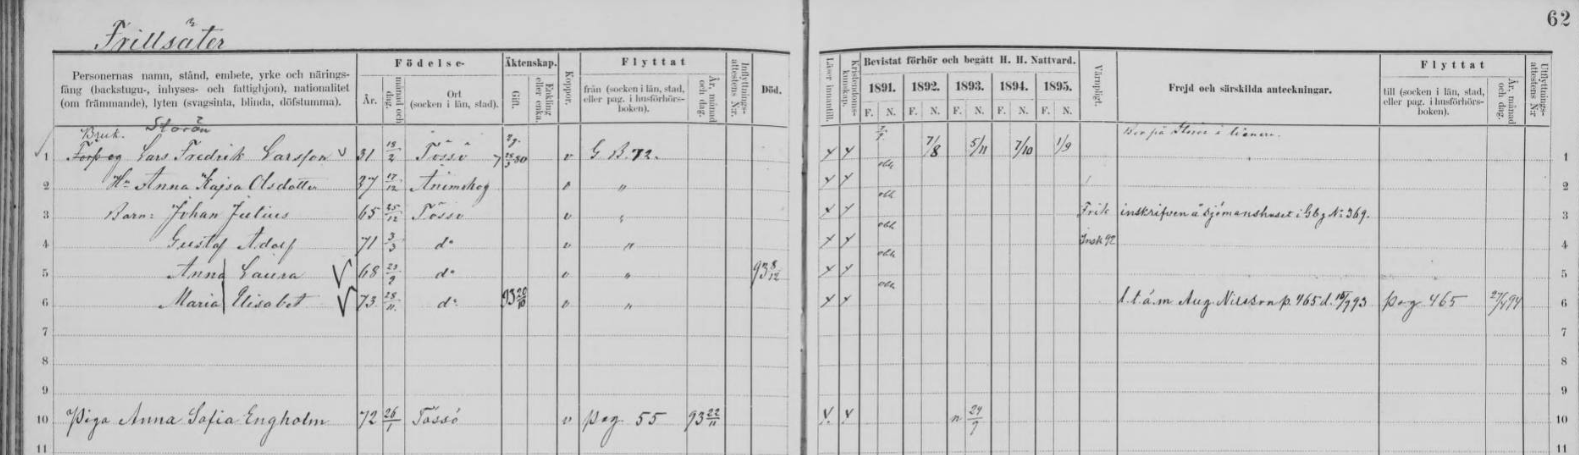 62
Frillsäter
Personernas namn, stånd, embete, yrke och närings-
fång (backstugu-, inhyses- och fattighjon), nationalitet
(om främmande), lyten (svagsinta, blinda, döfstumma).
Födelse-
År.
månad och dag.
Ort
(socken i län, stad).
Äktenskap.
Gift.
Enkling eller enka.
Koppor.
Flyttat
från (socken i län, stad,
eller pag. i husförhörs-
boken).
År, månad och dag.
Inflyttnings-attestens N:r.
Död.
Läser innantill.
Kristendoms-kunskap.
Bevistat förhör och begått H. H. Nattvard.
1891. 1892. 1893. 1894. 1895.
F. N. F. N. F. N. F. N. F. N.
Värnpligt.
Frejd och särskilda anteckningar.
Flyttat
till (socken i län, stad,
eller pag. i husförhörs-
boken).
År, månad och dag.
Utflyttnings-attestens N:r
Bruk. Storön
1 Torp eg Lars Fredrik Larsson 31 18/2 Tössö v G B. 72. 7/8 5/11 7/10 1/9 1
2 Hu Anna Kajsa Olsdotter 37 17/12 Ånimskog v " 2
3 Barn: Johan Julius 65 25/12 Tössö v " Frik inskrifven å sjömanshuset i Gbg No 369. 3
4 Gustaf Adolf 71 3/3 do v " Insk 92 4
5 Anna Laura 68 23/9 do v " 93 8/12 5
6 Maria Elisabet 73 28/11 do v " l. t. ä. m Aug Nilsson p. 465 d. 93 pag 465 94 6
7 7
8 8
9 9
10 Piga Anna Sofia Engholm 72 26/1 Tössö v pag 55 93 22/11 n 29/7 10
11 11